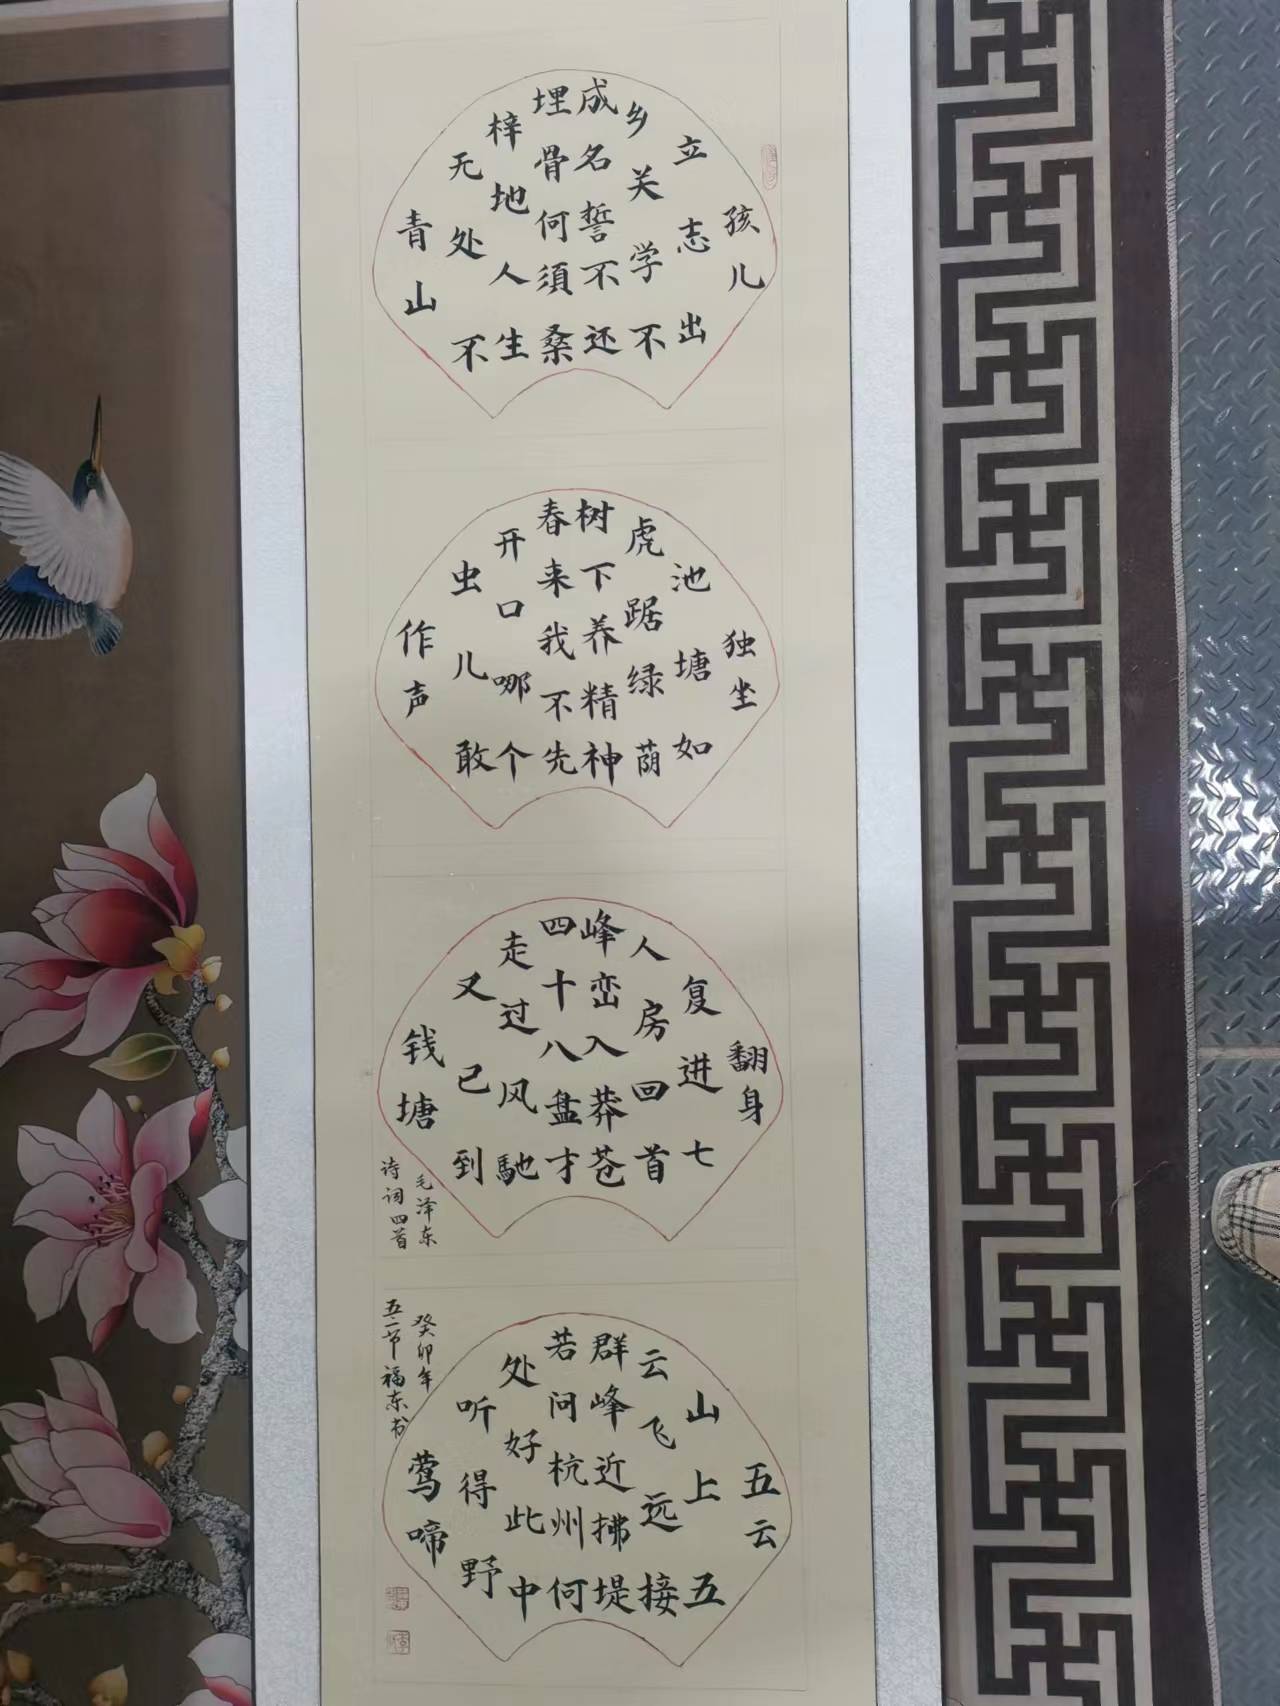 孩儿
立志出
乡关学不
成名誓不还
埋骨何须桑
梓地人生
无处不
青山
独坐
池塘如
虎踞绿荫
树下养精神
春来我不先
开口哪个
虫儿敢
作声
翻身
复进七
人房回首
峰峦入莽苍
四十八盘才
走过风馳
又已到
钱塘
毛泽东
诗词四首
五云
山上五
云飞远接
群峰近拂堤
若问杭州何
处好此中
听得野
莺啼
癸卯年
五二节福东书